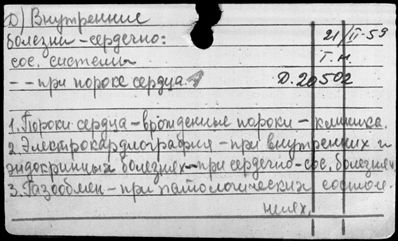 D) Внутренние
болезни-сердечно: 21/II-59
сос. системы Т. н.
-- при пороке сердца. D. 20502
1. Пороки сердца - врожденные пороки - клиника.
2 Электрокардиография - при внутренних и
эндокринных болезнях - при сердечно-сос. болезнях
3. Газообмен - при патологических состоя-
ниях.